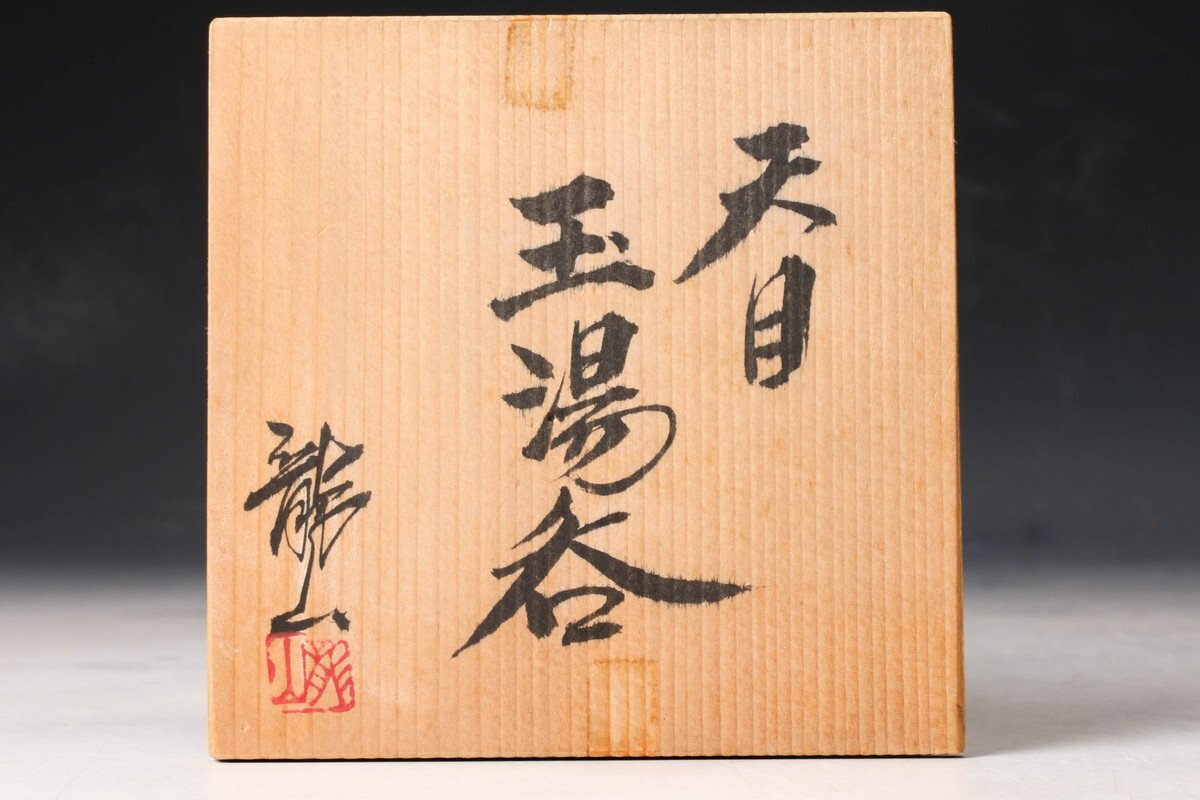 天目
玉湯呑
龍山